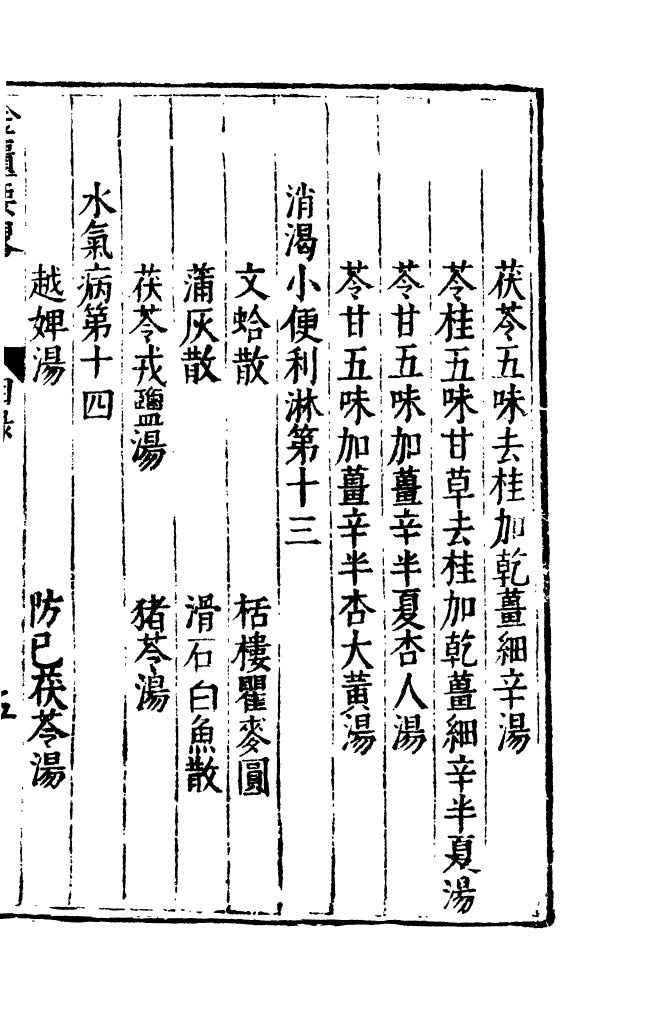 茯苓五味去桂加乾薑細辛湯
苓桂五味甘草去桂加乾薑細辛半夏湯
苓甘五味加薑辛半夏杏人湯
苓甘五味加薑辛半杏大黃湯
消渴小便利淋第十三
文蛤散 栝樓瞿麥圓
蒲灰散 滑石白魚散
茯苓戎鹽湯 猪苓湯
水氣病第十四
越婢湯 防已茯苓湯